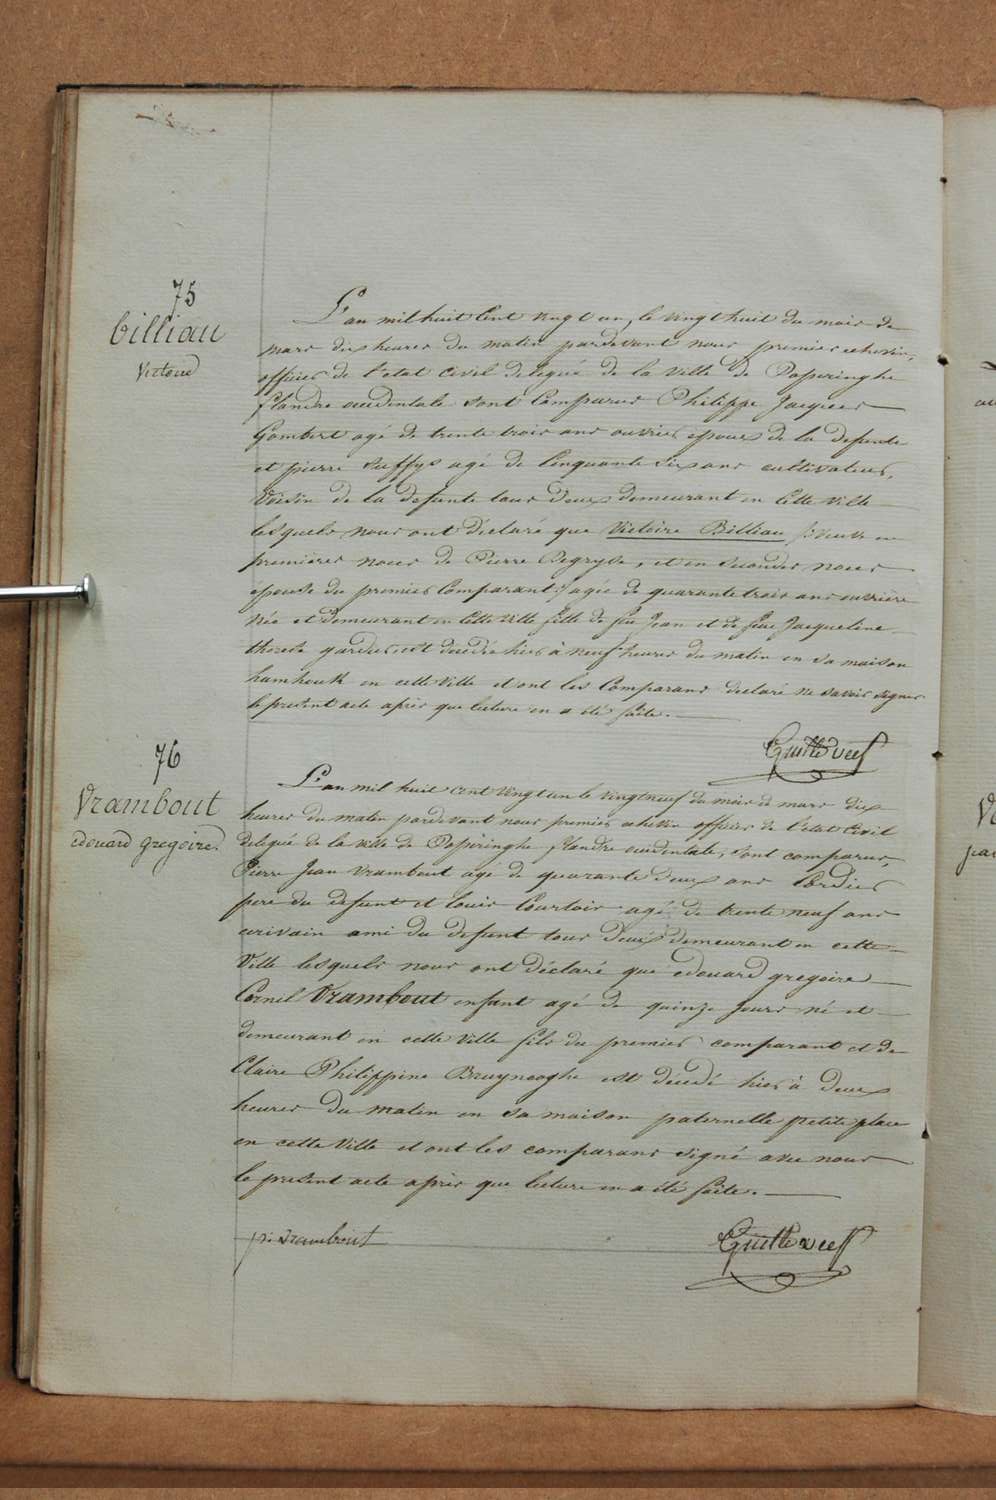 75
billiau
Victoire
L'an mil huit Cent vingt un, le vingt huit du mois de
mars dix heures du matin pardevant nous premier echevin,
officier de l'etat Civil delegué de la ville de Poperinghe
flandre occidentale sont Comparus Philippe Jacques
Gombert agé de trente trois ans ouvrier epoux de la defunte
et pierre Ruffys agé de Cinquante six ans cultivateur,
Voisin de la defunte tous deux demeurant en Cette ville
lesquels nous ont déclaré que Victoire Billiau /: veuve en
premières noces de Pierre Degryse, et en secondes noces
épouse du premier Comparant :/ agée de quarante trois ans ouvrière
née et demeurant en Cette ville fille de feu Jean et de feue Jacqueline
therese gardin, est décédée hier à neuf heures du matin en sa maison
hamhouk en cette ville et ont les Comparans declaré ne savoir signer
le present acte après que lecture en a été faite.
76
Vrambout
edouard gregoire.
L'an mil huit cent vingt un le vingt neuf du mois de mars dix
heures du matin pardevant nous premier echevin officier de l'etat Civil
delegué de la ville de Poperinghe flandre occidentale, sont comparus,
Pierre Jean Vrambout agé de quarante deux ans Cordier
pere du defunt et louis Courtois agé de trente neuf ans
ecrivain ami du defunt tous deux demeurant en cette
Ville lesquels nous ont déclaré que edouard gregoire
Cornil Vrambout enfant agé de quinze jours né et
demeurant en cette ville fils du premier comparant et de
Claire Philippine Bruyneoghe est décédé hier à deux
heures du matin en sa maison paternelle petite place
en cette Ville et ont les comparans signé avec nous
le present acte après que lecture en a été faite.
p: vrambout